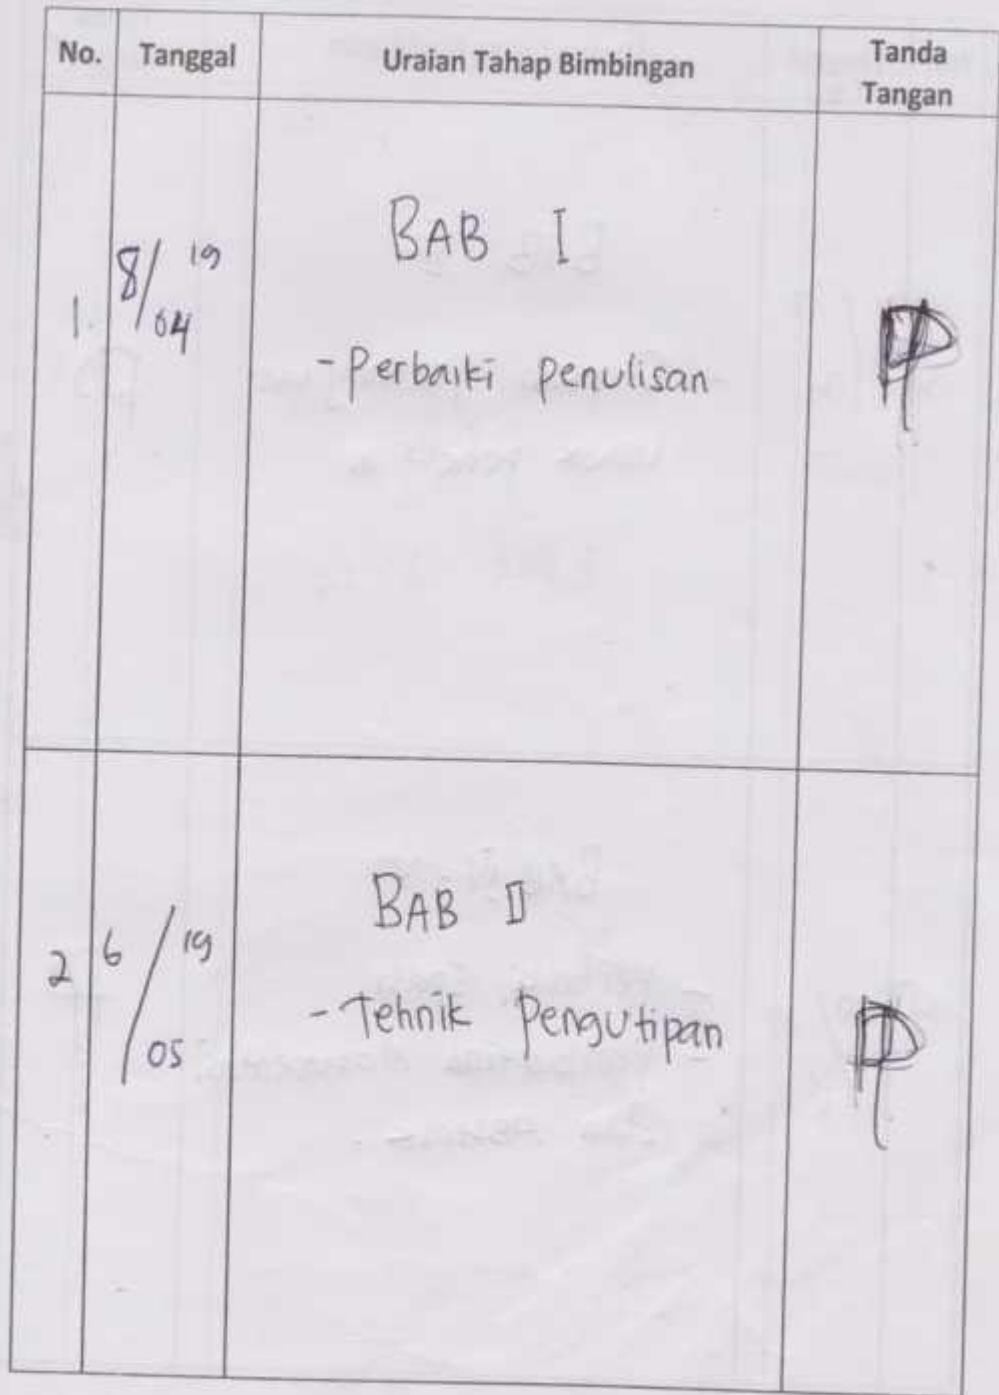 No. Tanggal Uraian Tahap Bimbingan Tanda Tangan
BAB I
8/04 19
1.
- Perbaiki penulisan
BAB II
2 6/05 19
- Tehnik Pengutipan